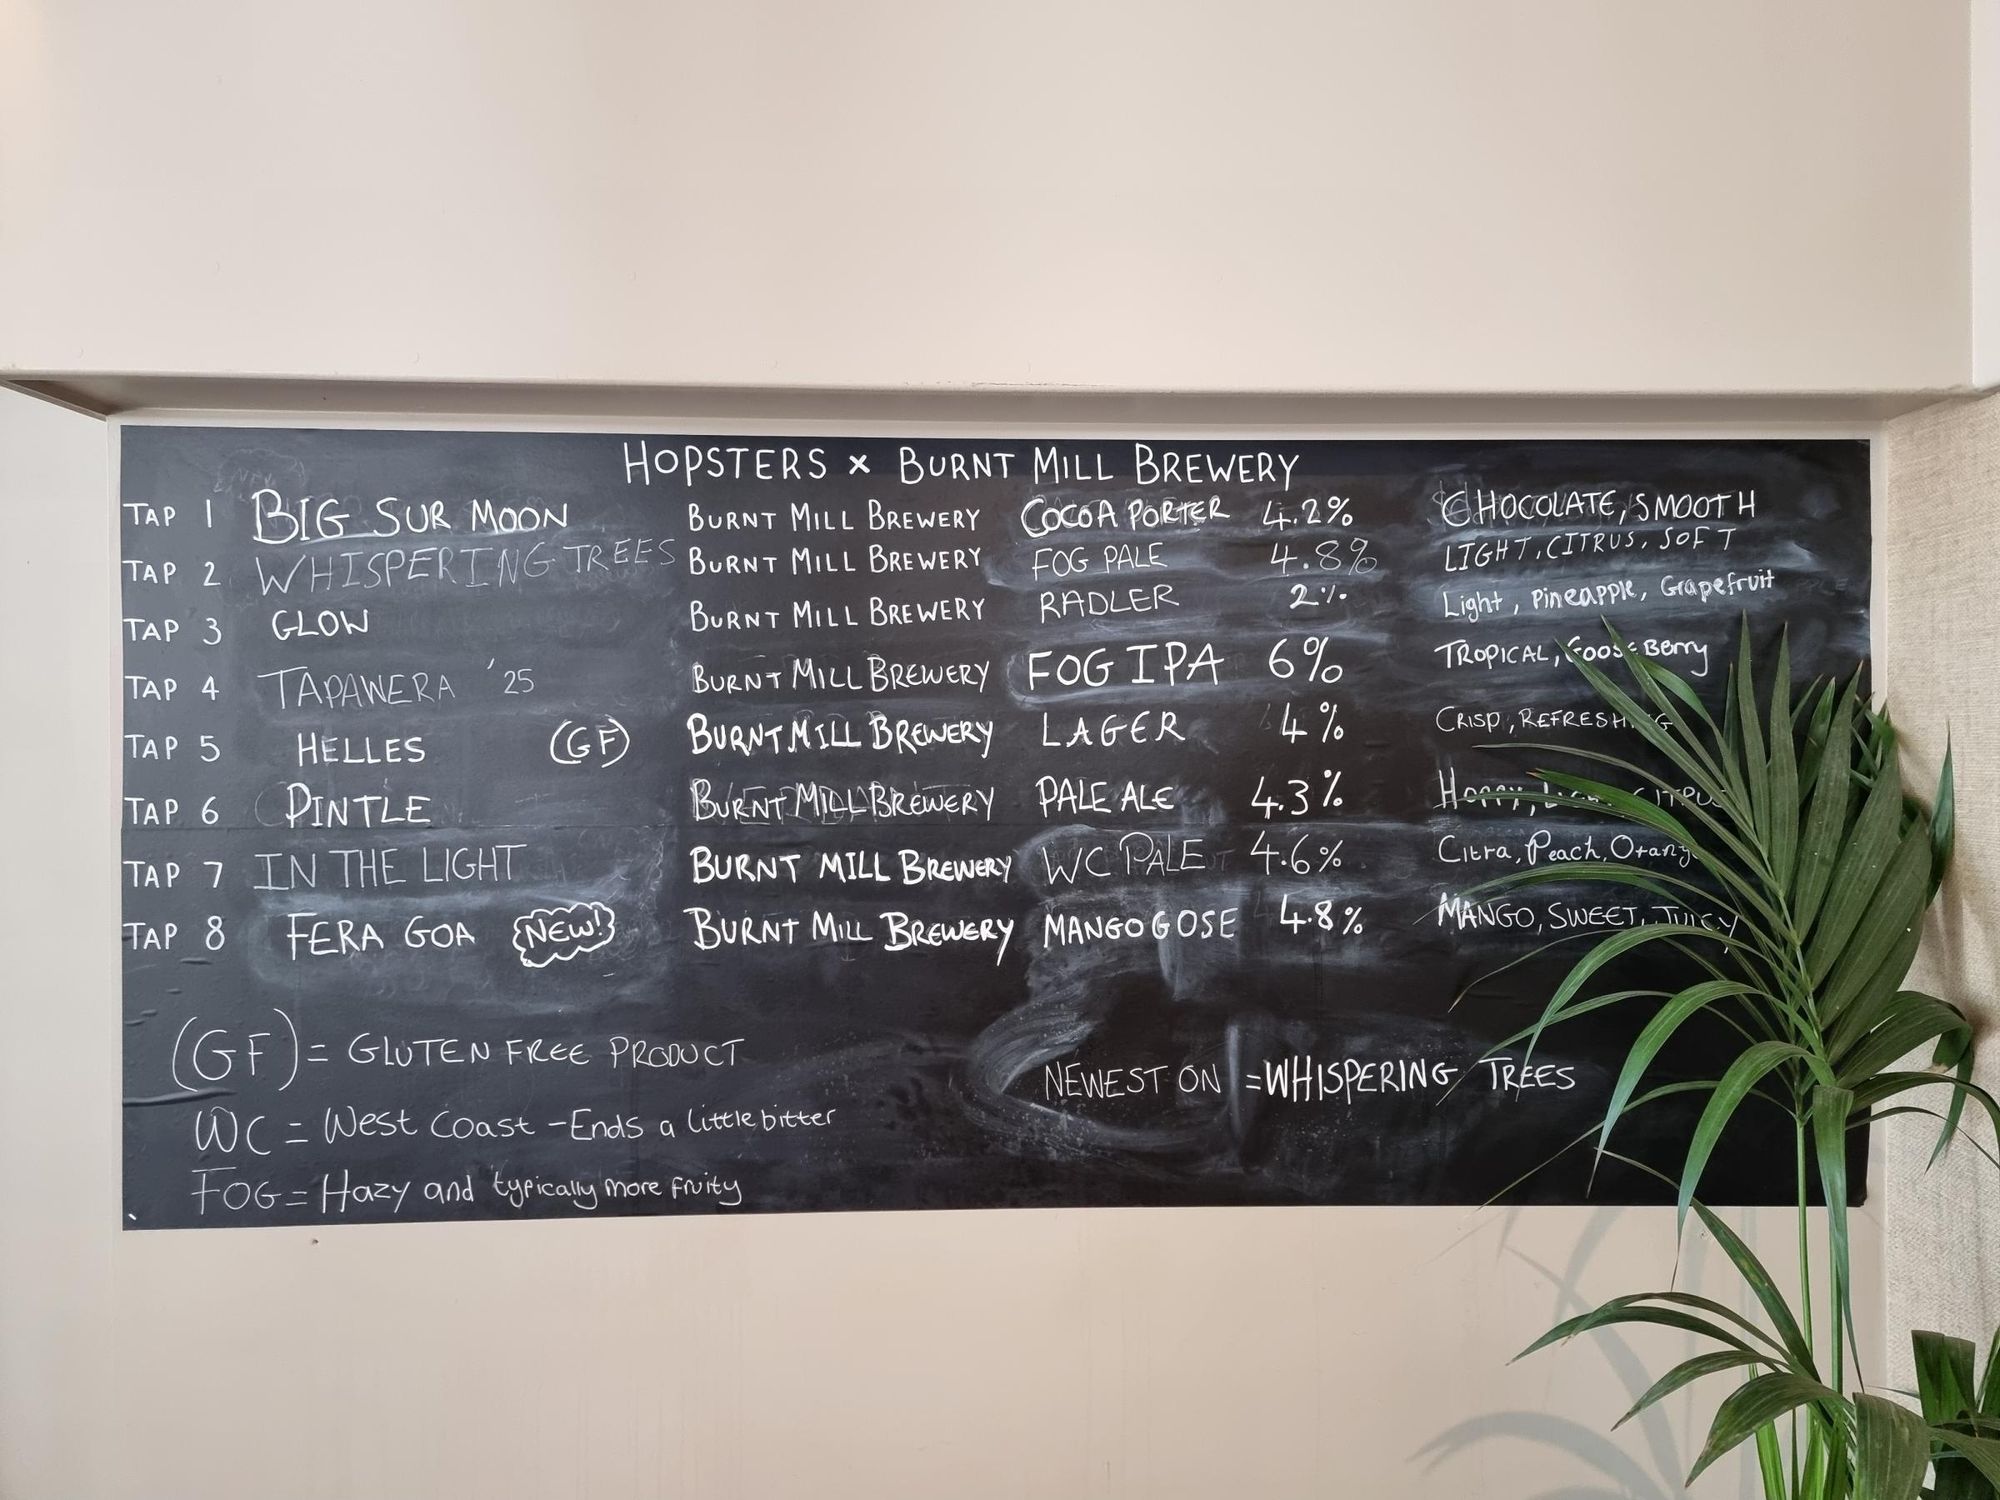 HOPSTERS x BURNT MILL BREWERY
TAP 1 BIG SUR MOON BURNT MILL BREWERY COCOA PORTER 4.2% CHOCOLATE, SMOOTH
TAP 2 WHISPERING TREES BURNT MILL BREWERY FOG PALE 4.8% LIGHT, CITRUS, SOFT
TAP 3 GLOW BURNT MILL BREWERY RADLER 2% Light, Pineapple, Grapefruit
TAP 4 TAPAWERA '25 BURNT MILL BREWERY FOG IPA 6% TROPICAL, GOOSEBERRY
TAP 5 HELLES (GF) BURNT MILL BREWERY LAGER 4% CRISP, REFRESHING
TAP 6 PINTLE BURNT MILL BREWERY PALE ALE 4.3% HOPPY, LIGHT, CITRUS
TAP 7 IN THE LIGHT BURNT MILL BREWERY WC PALE 4.6% Citra, Peach, Orang
TAP 8 FERA GOA NEW! BURNT MILL BREWERY MANGO GOSE 4.8% MANGO, SWEET, JUICY
(GF) = GLUTEN FREE PRODUCT
NEWEST ON = WHISPERING TREES
WC = West Coast - Ends a little bitter
FOG = Hazy and typically more fruity